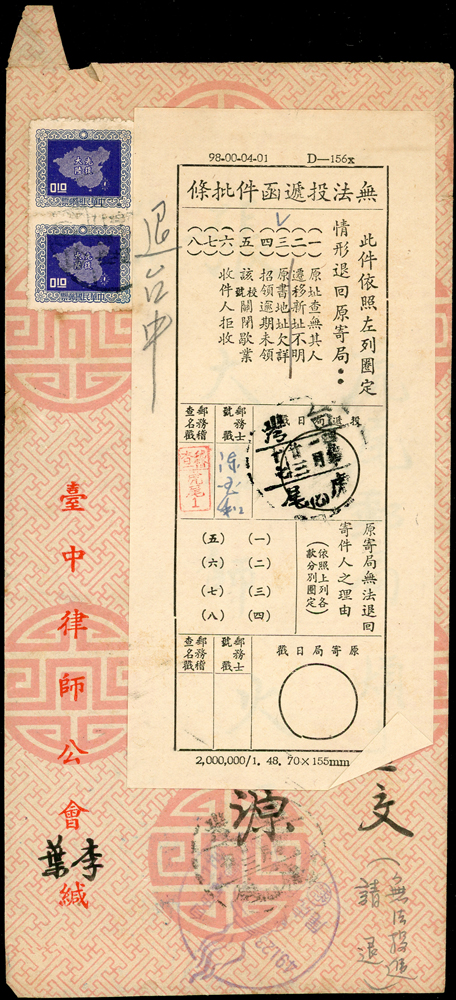 98-00-04-01 D—156x
無法投遞函件批條
此件依照左列圈定
情形退回原寄局：
(一) 原址查無其人
(二) 遷移新址不明
(三) 原書地址欠詳
(四) 招領逾期未領
(五) 該號校關閉歇業
(六) 收件人拒收
(七)
(八)
投遞局日戳
郵務士號戳
郵務稽查名戳
虎尾
原寄局無法退回
寄件人之理由
(依照上列各款分別圈定)
(一)
(二)
(三)
(四)
(五)
(六)
(七)
(八)
原寄局日戳
郵務士號戳
郵務稽查名戳
2,000,000/1. 48. 70×155mm
退台中
光復大陸
010
中華民國郵票
光復大陸
010
中華民國郵票
臺中律師公會緘
李葉
源
文
(無法投遞
請退)